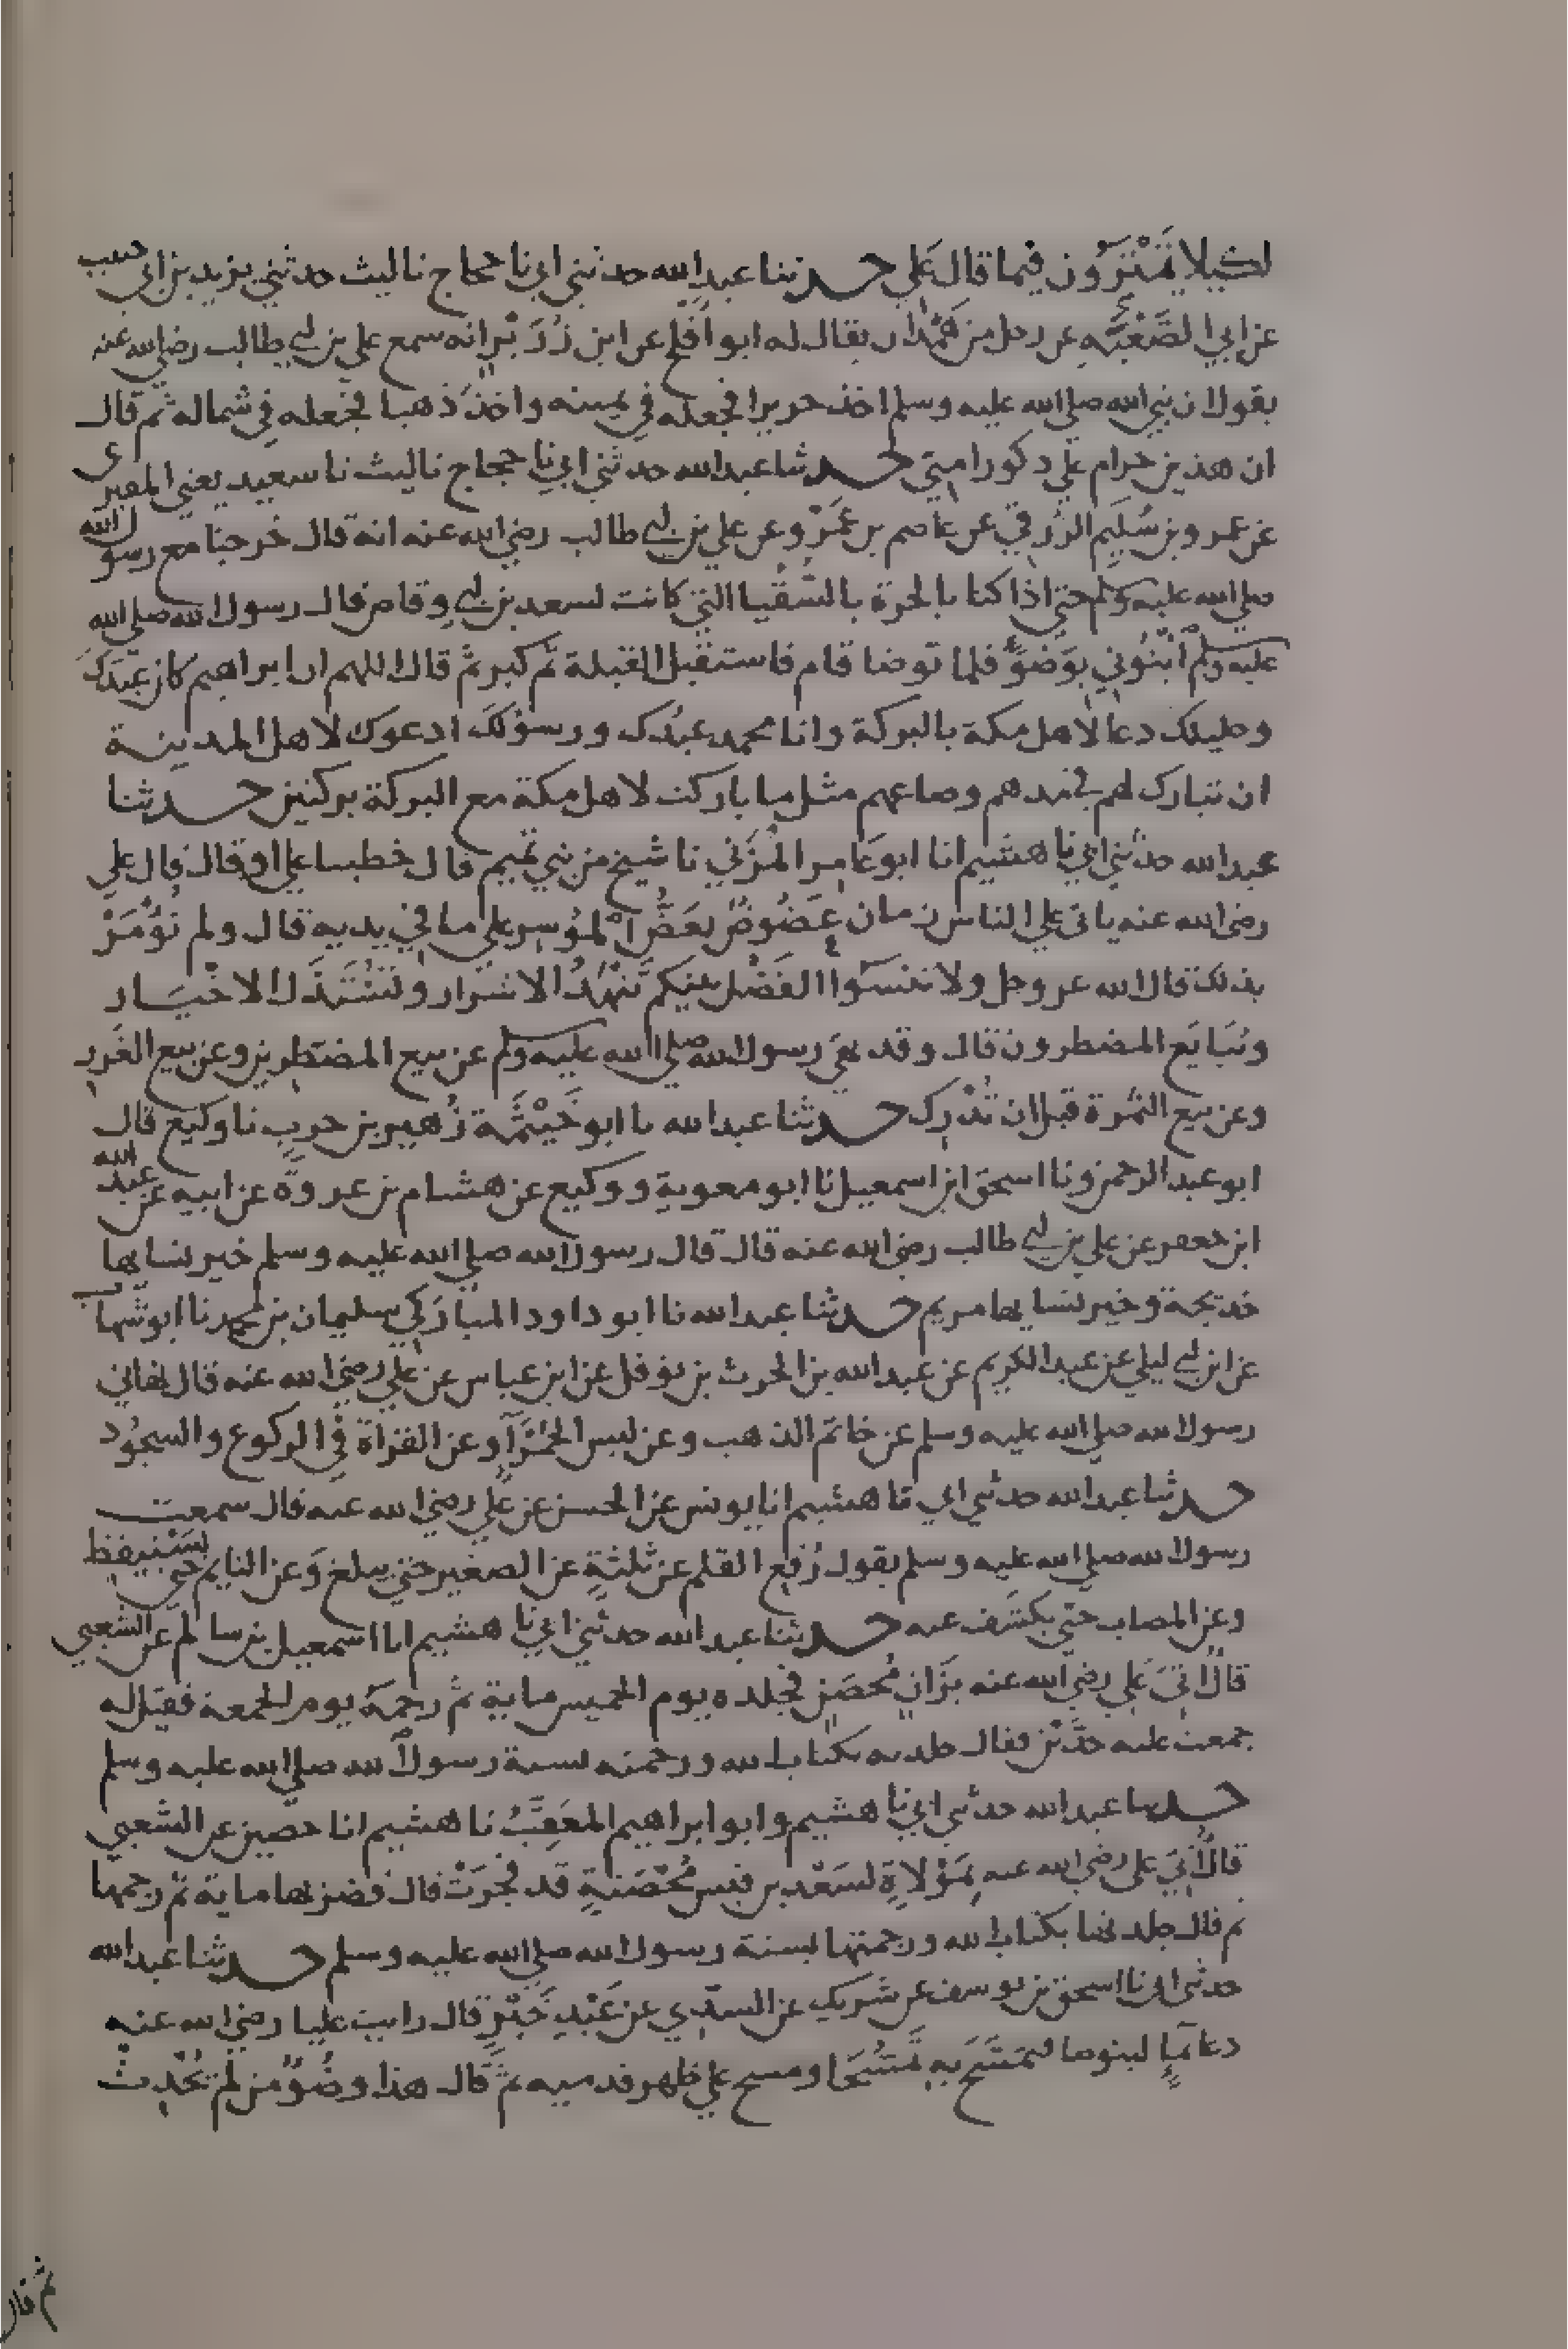 لكيلا يمترون فيما قال علي حدثنا عبد الله حدثني ابي نا حجاج نا ليث حدثني يزيد بن ابي حبيب
عن ابي الصعبة عن رجل من همدان يقال له ابو افلح عن ابن زرير انه سمع علي بن ابي طالب رضي الله عنه
يقول ان نبي الله صلى الله عليه وسلم اخذ حريرا فجعله في يمينه واخذ ذهبا فجعله في شماله ثم قال
ان هذين حرام علي ذكور امتي حدثنا عبد الله حدثني ابي نا حجاج نا ليث نا سعيد يعني المقبري
عن عمرو بن سليم الزرقي عن عاصم بن عمرو عن علي بن ابي طالب رضي الله عنه انه قال خرجنا مع رسول الله
صلى الله عليه وسلم حتى اذا كنا بالحرة بالسقيا التي كانت لسعد بن ابي وقاص قال رسول الله صلى الله
عليه وسلم ائتوني بوضوء فلما توضا قام فاستقبل القبلة ثم كبر ثم قال اللهم ان ابراهيم كان عبدك
وخليلك دعا لاهل مكة بالبركة وانا محمد عبدك ورسولك ادعوك لاهل المدينة
ان تبارك لهم في مدهم وصاعهم مثل ما باركت لاهل مكة مع البركة بركتين حدثنا
عبد الله حدثني ابي نا هشيم انا ابو عامر المزني نا شيخ من بني تميم قال خطبنا علي او قال قال علي
رضي الله عنه ياتي علي الناس زمان عضوض يعض الموسر علي ما في يديه قال ولم يؤمر
بذلك قال الله عز وجل ولا تنسوا الفضل بينكم تنهد الاشرار وتستذل الاخيار
ويبايع المضطرون قال وقد نهى رسول الله صلى الله عليه وسلم عن بيع المضطرين وعن بيع الغرر
وعن بيع الثمرة قبل ان تدرك حدثنا عبد الله نا ابو خيثمة زهير بن حرب نا وكيع قال
ابو عبد الرحمن ونا اسحق ابن اسمعيل نا ابو معوية ووكيع عن هشام بن عروة عن ابيه عن عبد الله
ابن جعفر عن علي بن ابي طالب رضي الله عنه قال قال رسول الله صلى الله عليه وسلم خير نسايها
خديجة وخير نسايها مريم حدثنا عبد الله نا ابو داود المباركي سليمان بن محمد نا ابو شهاب
عن ابن ابي ليلي عن عبد الكريم عن عبد الله بن الحرث بن نوفل عن ابن عباس عن علي رضي الله عنه قال نهاني
رسول الله صلى الله عليه وسلم عن خاتم الذهب وعن لبس الحمرآ وعن القراة في الركوع والسجود
حدثنا عبد الله حدثني ابي نا هشيم انا يونس عن الحسن عن علي رضي الله عنه قال سمعت
رسول الله صلى الله عليه وسلم يقول رفع القلم عن ثلثة عن الصغير حتى يبلغ وعن النايم حتى يستيقظ
وعن المصاب حتى يكشف عنه حدثنا عبد الله حدثني ابي نا هشيم انا اسمعيل بن سالم عن الشعبي
قال اتي علي رضي الله عنه بزان محصن فجلده يوم الخميس ماية ثم رجمه يوم الجمعة فقيل له
جمعت عليه حدين فقال جلدته بكتاب الله ورجمته بسنة رسول الله صلى الله عليه وسلم
حدثنا عبد الله حدثني ابي نا هشيم وابو ابراهيم المعقب نا هشيم انا حصين عن الشعبي
قال اتي علي رضي الله عنه بمولاة لسعد بن قيس محصنة قد فجرت قال فضربها ماية ثم رجمها
ثم قال جلدتها بكتاب الله ورجمتها بسنة رسول الله صلى الله عليه وسلم حدثنا عبد الله
حدثني ابي نا اسحق بن يوسف عن شريك عن السدي عن عبد خير قال رايت عليا رضي الله عنه
دعا بمآء ليتوضا فتمسح به تمسحا ومسح علي ظهر قدميه ثم قال هذا وضوء من لم يحدث
ثم قال